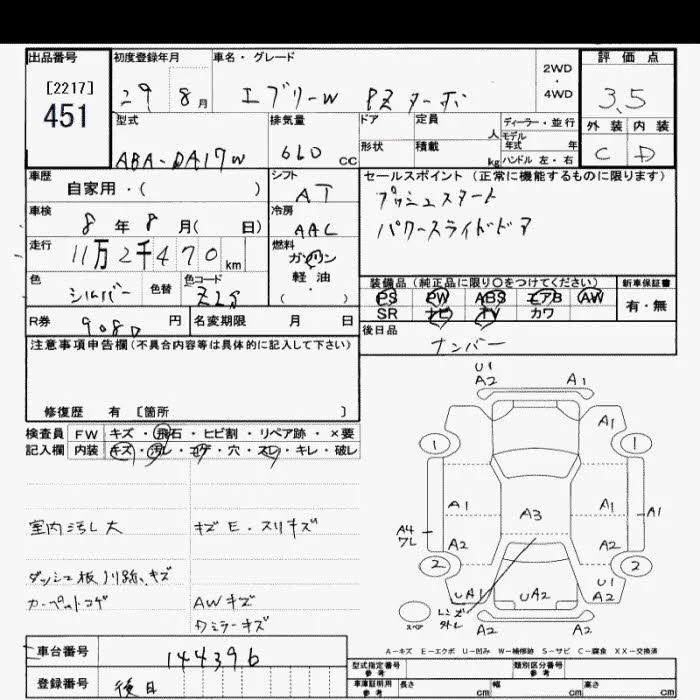 出品番号 初度登録年月 車名・グレード 2WD・4WD 評価点
[2217] 451 29 8月 エブリーW PZ ターボ 3.5
外装 内装
C D
型式 排気量 ドア 定員 人 ディーラー・並行
ABA-DA17W 660 cc 形状 積載 kg モデル年式 年
ハンドル 左・右
車歴 シフト セールスポイント(正常に機能するものに限ります)
自家用・( ) AT プッシュスタート
車検 冷房 パワースライドドア
8年 8月( 日) AAC
走行 燃料
11万2千470km ガソリン
軽・油
( )
色 色替 色コード 装備品(純正品に限り○をつけてください) 新車保証書
シルバー Z2S PS PW ABS エアB AW 有・無
SR ナビ TV カワ
R券 9080円 名変期限 月 日 後日品
ナンバー
注意事項申告欄(不具合内容等は具体的に記入して下さい)
修復歴 有 [箇所 ]
検査員 FW キズ・飛石・ヒビ割・リペア跡・×要
記入欄 内装 キズ・汚レ・コゲ・穴・スレ・キレ・破レ
室内汚レ大 キズ E・スリキズ
ダッシュ板ノリ跡、キズ
カーペットコゲ AWキズ
Dミラーキズ
U1
A2 A1
A1
1 1
A1 A3 A1 A1
A4
ワレ A2 A2
2 2
UA1 UA2 U1
A2
スペア レンズ
外レ A2 A2
A-キズ E-エクボ U-凹み W-補修跡 S-サビ C-腐食 XX-交換済
車台番号 144396
登録番号 後日
型式指定番号 参考 類別区分番号 参考
車庫証明用 参考 長さ cm 幅 cm 高さ cm